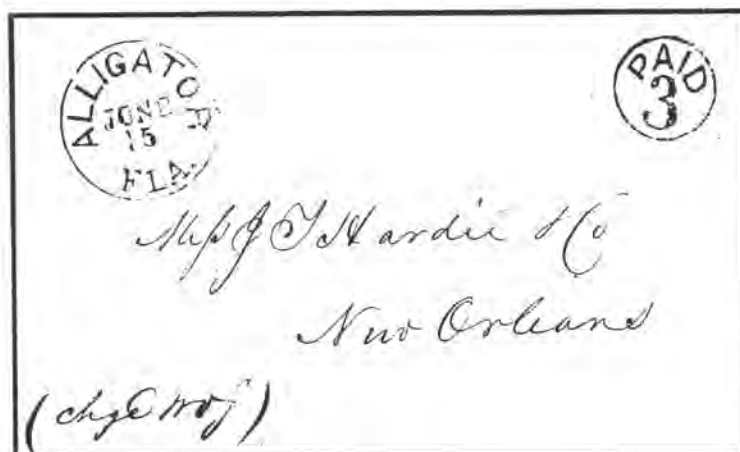 ALLIGATOR
JUNE
15
FLA.
PAID
3
Mess J T Hardie & Co
New Orleans
(chg